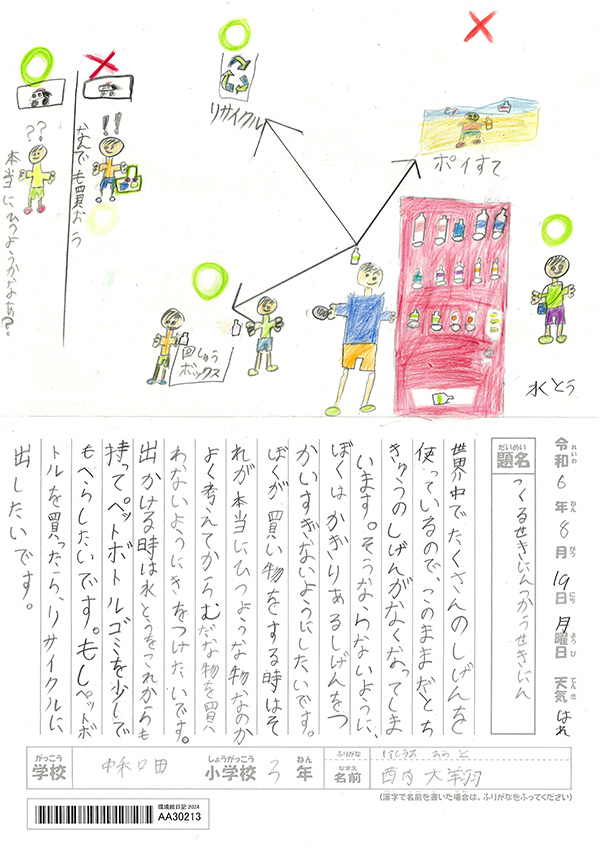 リサイクル
ポイすて
なんでも買おう
!!
??
本当にひつようかなあ?
回しゅう
ボックス
水とう
令和6年8月19日月曜日 天気 はれ
れいわ ねん がつ にち ようび てんき
だいめい
題名
つくるせきにんつかうせきにん
世界中でたくさんのしげんを
使っているので、このままだとち
きゅうのしげんがなくなってしま
います。そうならないように、
ぼくはかぎりあるしげんをつ
かいすぎないようにしたいです。
ぼくが買い物をする時はそ
れが本当にひつような物なのか
よく考えてからむだな物を買
わないようにきをつけたいです。
出かける時は水とうをこれからも
持ってペットボトルゴミを少しで
もへらしたいです。もしペットボ
トルを買ったら、リサイクルに
出したいです。
がっこう
学校
中和田
しょうがっこう
小学校
3
ねん
年
ふりがな
なまえ
名前
西内 大翔
(漢字で名前を書いた場合は、ふりがなをふってください)
環境絵日記 2024
AA30213